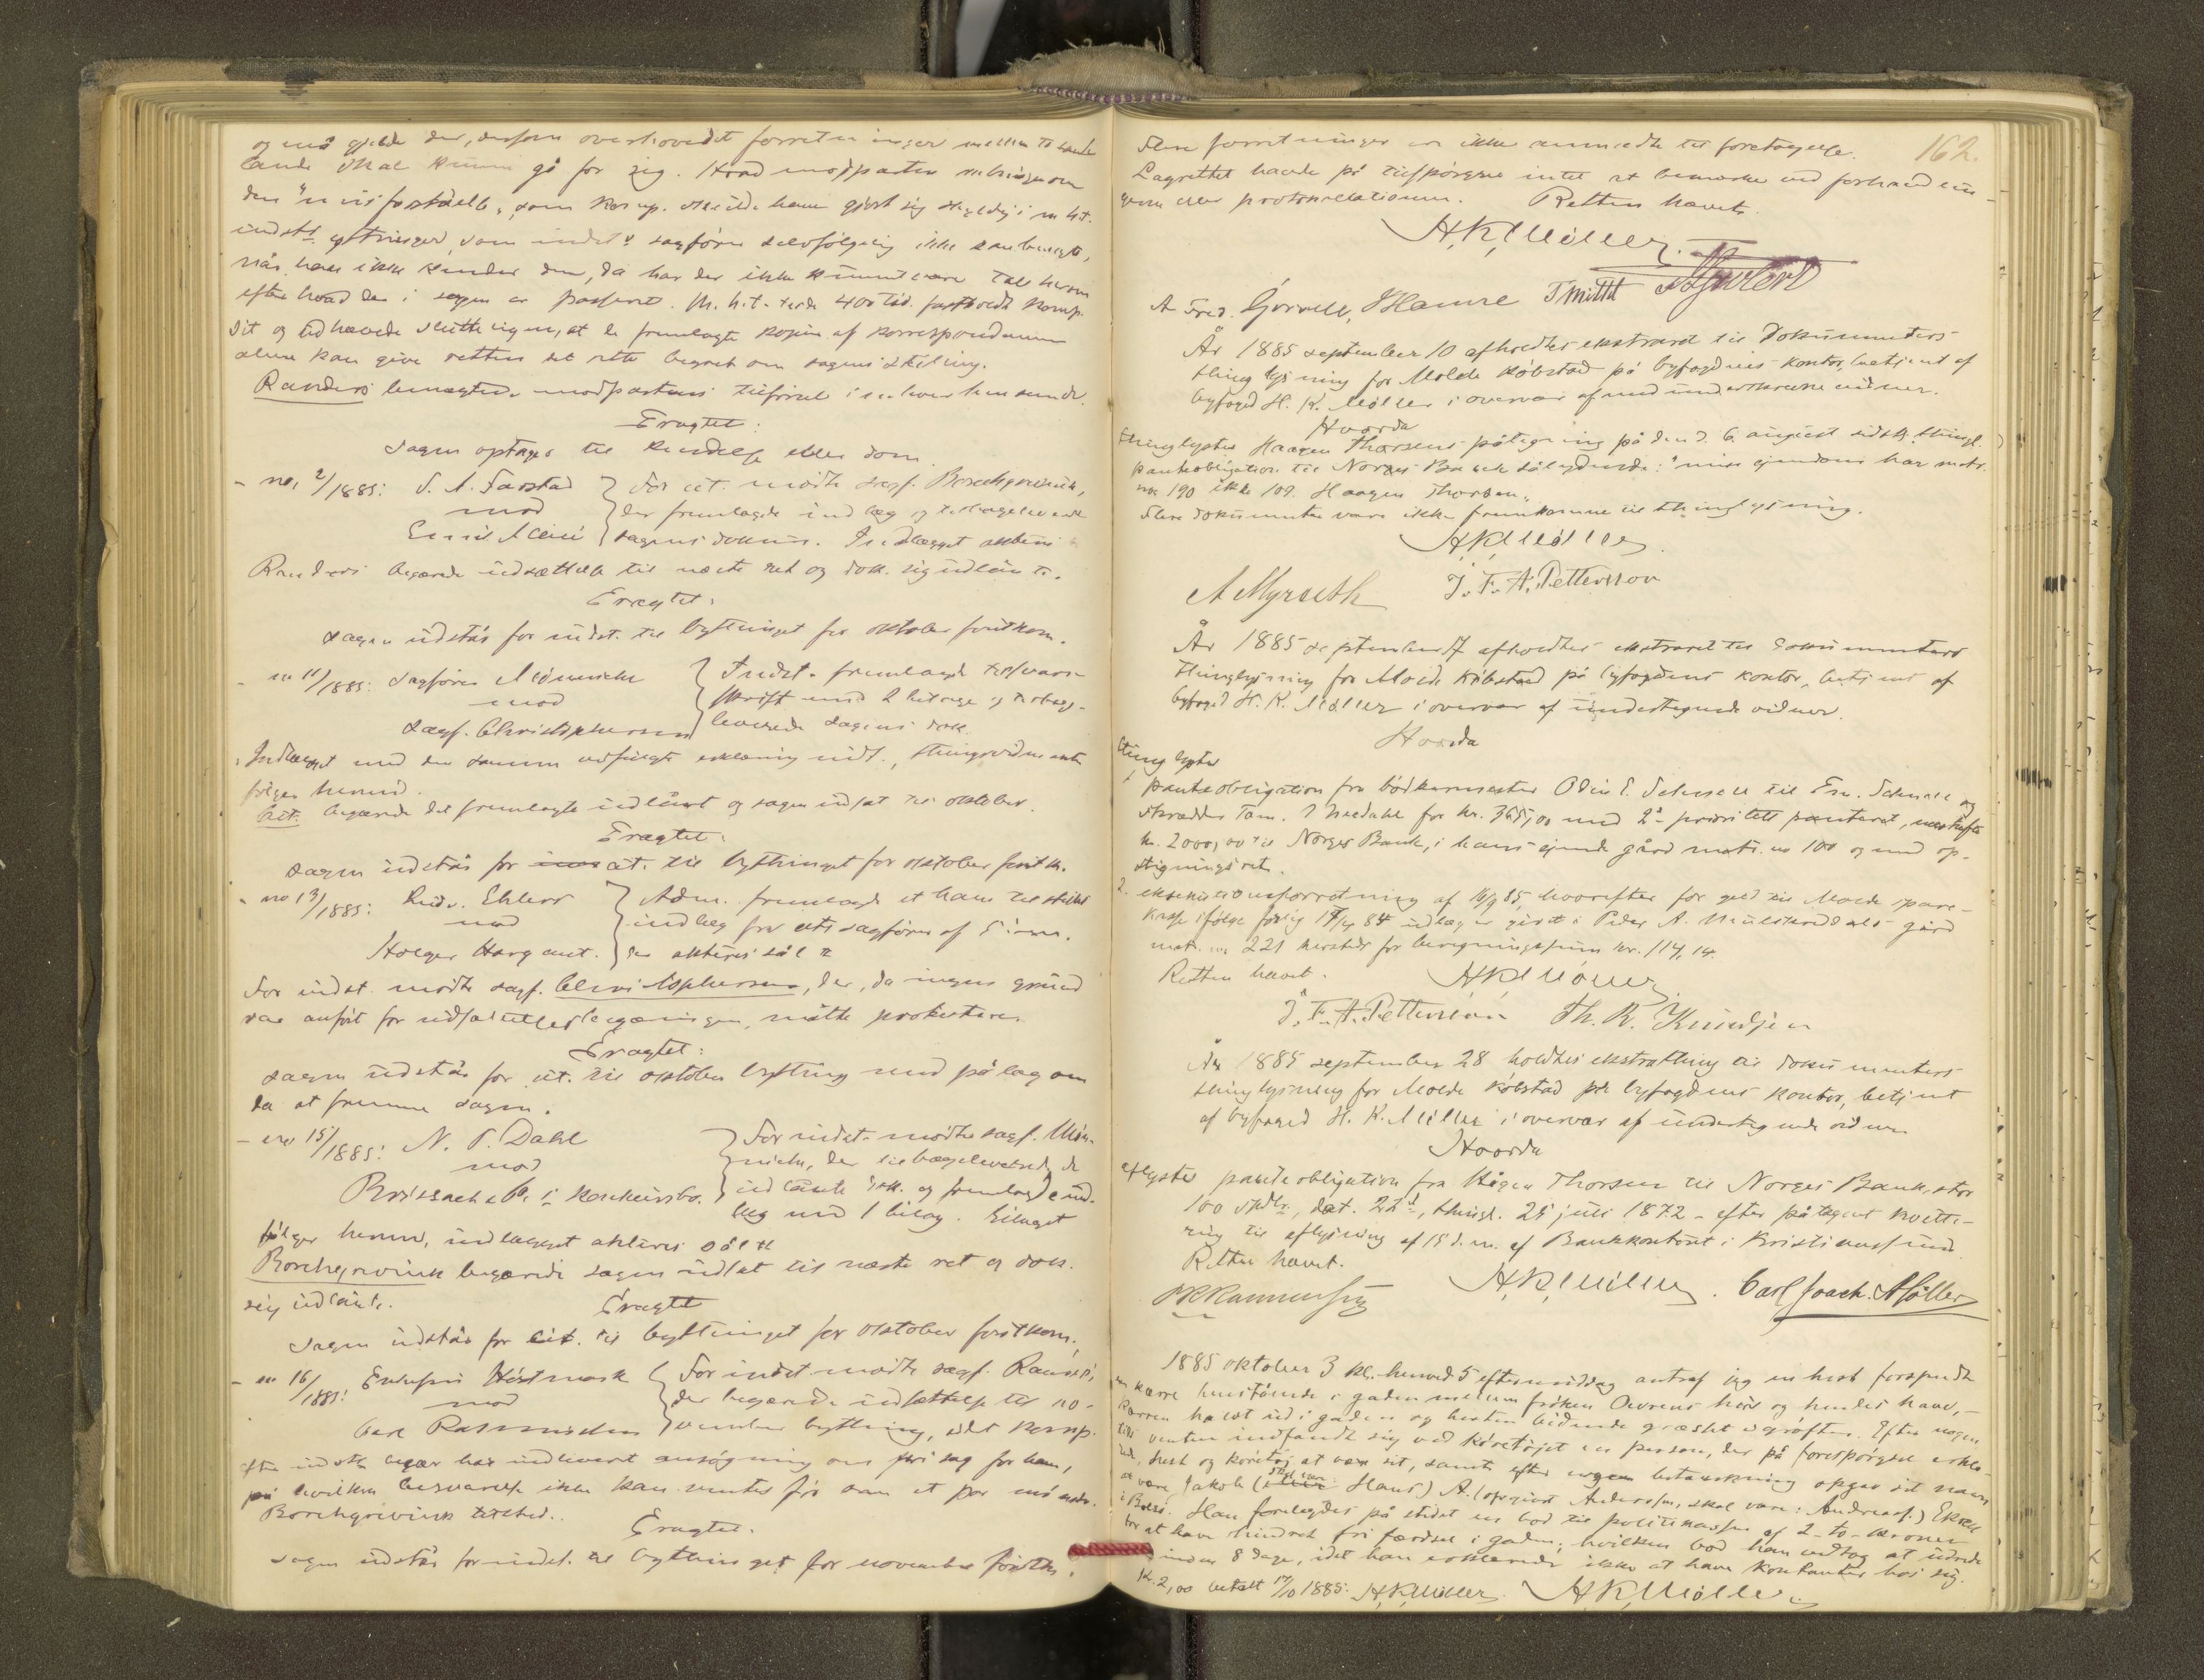 og må gjelde der, dersom overhovedet forretninger mellem to
lande skal kunne gå for sig. Hvad modparten
den som komp. skulde have gjort sig skyldig i m. h. t.
indst. ytringer, som indst. sagfører selvfølgelig ikke kan benegte,
når han ikke kjender dem, da har der ikke kunnet være tale herom
efter hvad der i sagen er passeret. M. h. t. fastholdt komp.
sit og udhævede at de fremlagte kopier af korrespondancen
alene kan give retten det rette begreb om sagens stilling.
Randers benægtede modpartens tilførsel i enhver henseende.
Eragtet:
Sagen optages til kjendelse eller dom.
- no. 2/1885: S. A. Farstad
mod
For cit. mødte sagf. Borchgrevink,
der fremlagde indlæg og tilbageleverede
sagens dokum. Indlægget akteres
Randers begærede udsættelse til næste ret og dok. sig udlånt.
Eragtet:
Sagen udstår for indst. til bythinget for oktober førstkom.
- no 11/1885: Sagfører Mønniche
mod
Sagf. Christophersen
Indst. fremlagde tilsvars-
skrift med 2 bilage og tilbage-
leverede sagens dok.
Indlægget med den samme vedføiede erklæring
følger herved.
Cit. begærede det fremlagte udlånt og sagen udsat til oktober.
Eragtet:
Sagen udstår for cit. til bythinget for oktober førstk.
- no 13/1885: Ehlers
mod
Holger Hargaut.
Adm. fremlagde et ham tilstillet
indlæg fra cits sagfører af
der akteres sål.
For indst. mødte sagf. Christophersen, der, da ingen grund
var anført for udsættelsesbegæringen, måtte protestere.
Eragtet:
Sagen udstår for cit. til oktober bything med pålæg om
da at fremme sagen.
- no 15/1885: N. P. Dahl
mod
Brissach & Co. i konkursbo.
For indst. mødte sagf. Møn-
niche, der tilbageleverede de
udlånte dok. og fremlagde ind-
læg med 1 bilag. Bilaget
følger herved, indlægget akteres sål.
Borchgrevink begærede sagen udsat til næste ret og dok.
sig udlånt.
Eragtet
Sagen udstår for cit. til bythinget for oktober førstkom.
- no 16/1885: Høstmark
mod
Carl Rasmussen
For indst mødte sagf. Randers,
der begærede udsættelse til no-
vember bything, idet komp.
efter indst. begær har indleveret ansøgning om fri sag for ham,
på hvilken besvarelse ikke kan ventes før om et par måneder.
Borchgrevink tilsted.
Eragtet.
Sagen udstår for indst. til bythinget for november førstk.
162.
Flere forretninger var ikke anmeldte til foretagelse.
Lagrettet havde på tilspørgsel intet at bemærke ved forhandlin-
gerne eller protokollationen. Retten hævet.
H. K. Møller.
År 1885 september 10 afholdtes ekstraret til dokumenters
thinglysning for Molde købstad på byfogdens kontor, betjent af
byfoged H. K. Møller i overvær af medunderskrevne vidner.
Hvorda
thinglystes Haagen Thorsens påtegning på den d. 6 august sidstl. thingl.
panteobligation til Norges Bank sålydende: "min ejendom har matr.
no 190 ikke 109. Haagen Thorsen".
Flere dokumenter vare ikke fremkomne til thinglysning.
H. K. Møller.
A Myrseth J. F. A. Pettersson
År 1885 september 17 afholdtes ekstraret til dokumenters
thinglysning for Molde købstad på byfogdens kontor, betjent af
byfoged H. K. Møller i overvær af undertegnede vidner.
Hvorda
thinglystes
1. panteobligation fra bødkermester til og
skrædder for kr. 365,00 med 2den prioritets panteret, næstefter
kr. 2000,00 til Norges Bank, i hans ejende gård matr. no 100 og med op-
rigningsret.
2. eksekutionsforretning af 16/9 85, hvorefter for gæld til Molde spare-
kasse ifølge forlig udlæg er givet i Peder A. gård
matr. no 221 herstedes for beregningssum kr. 114,14.
Retten hævet.
H. K. Møller.
J. F. A. Pettersson Th. R. Knudsen
År 1885 september 28 holdtes ekstrathing til dokumenters
thinglysning for Molde købstad på byfogdens kontor, betjent
af byfoged H. K. Møller i overvær af undertegnede vidner
Hvorda
aflystes panteobligation fra Hågen Thorsen til Norges Bank, stor
100 spdlr., dat. 22d, thingl. 25 juli 1872 - efter påtegnet kvitte-
ring til aflysning af 15 d. m. af Bankkontoret i Kristianssund.
Retten hævet.
H. K. Møller. Carl Joach. Møller
1885 oktober 3 kl. henved 5 eftermiddag antraf jeg en hest forspændt
en kærre henstående i gaden mellem frøken Owrens hus og hendes have, -
kærren halvt ud i gaden og hesten bidende græsset i grøften. Efter nogen
tids venten indfandt sig ved køretøjet en person, der på forespørgsel erklæ-
rede, hest og køretøj at være sit, samt efter nogen betænkning opgav sit navn
at være Jakob (skal være: Hans) A. (opgivet Anderssen, skal være: Andreass.) Ekeren
i Bolsø. Han forelagdes på stedet en bod til politikassen af 2 - to - kroner
for at have hindret fri færdsel i gaden; hvilken bod han vedtog at udrede
inden 8 dage, idet han erklærede ikke at have kontanter hos sig.
Kr. 2,00 betalt 17/10 1885. H. K. Møller. H. K. Møller.